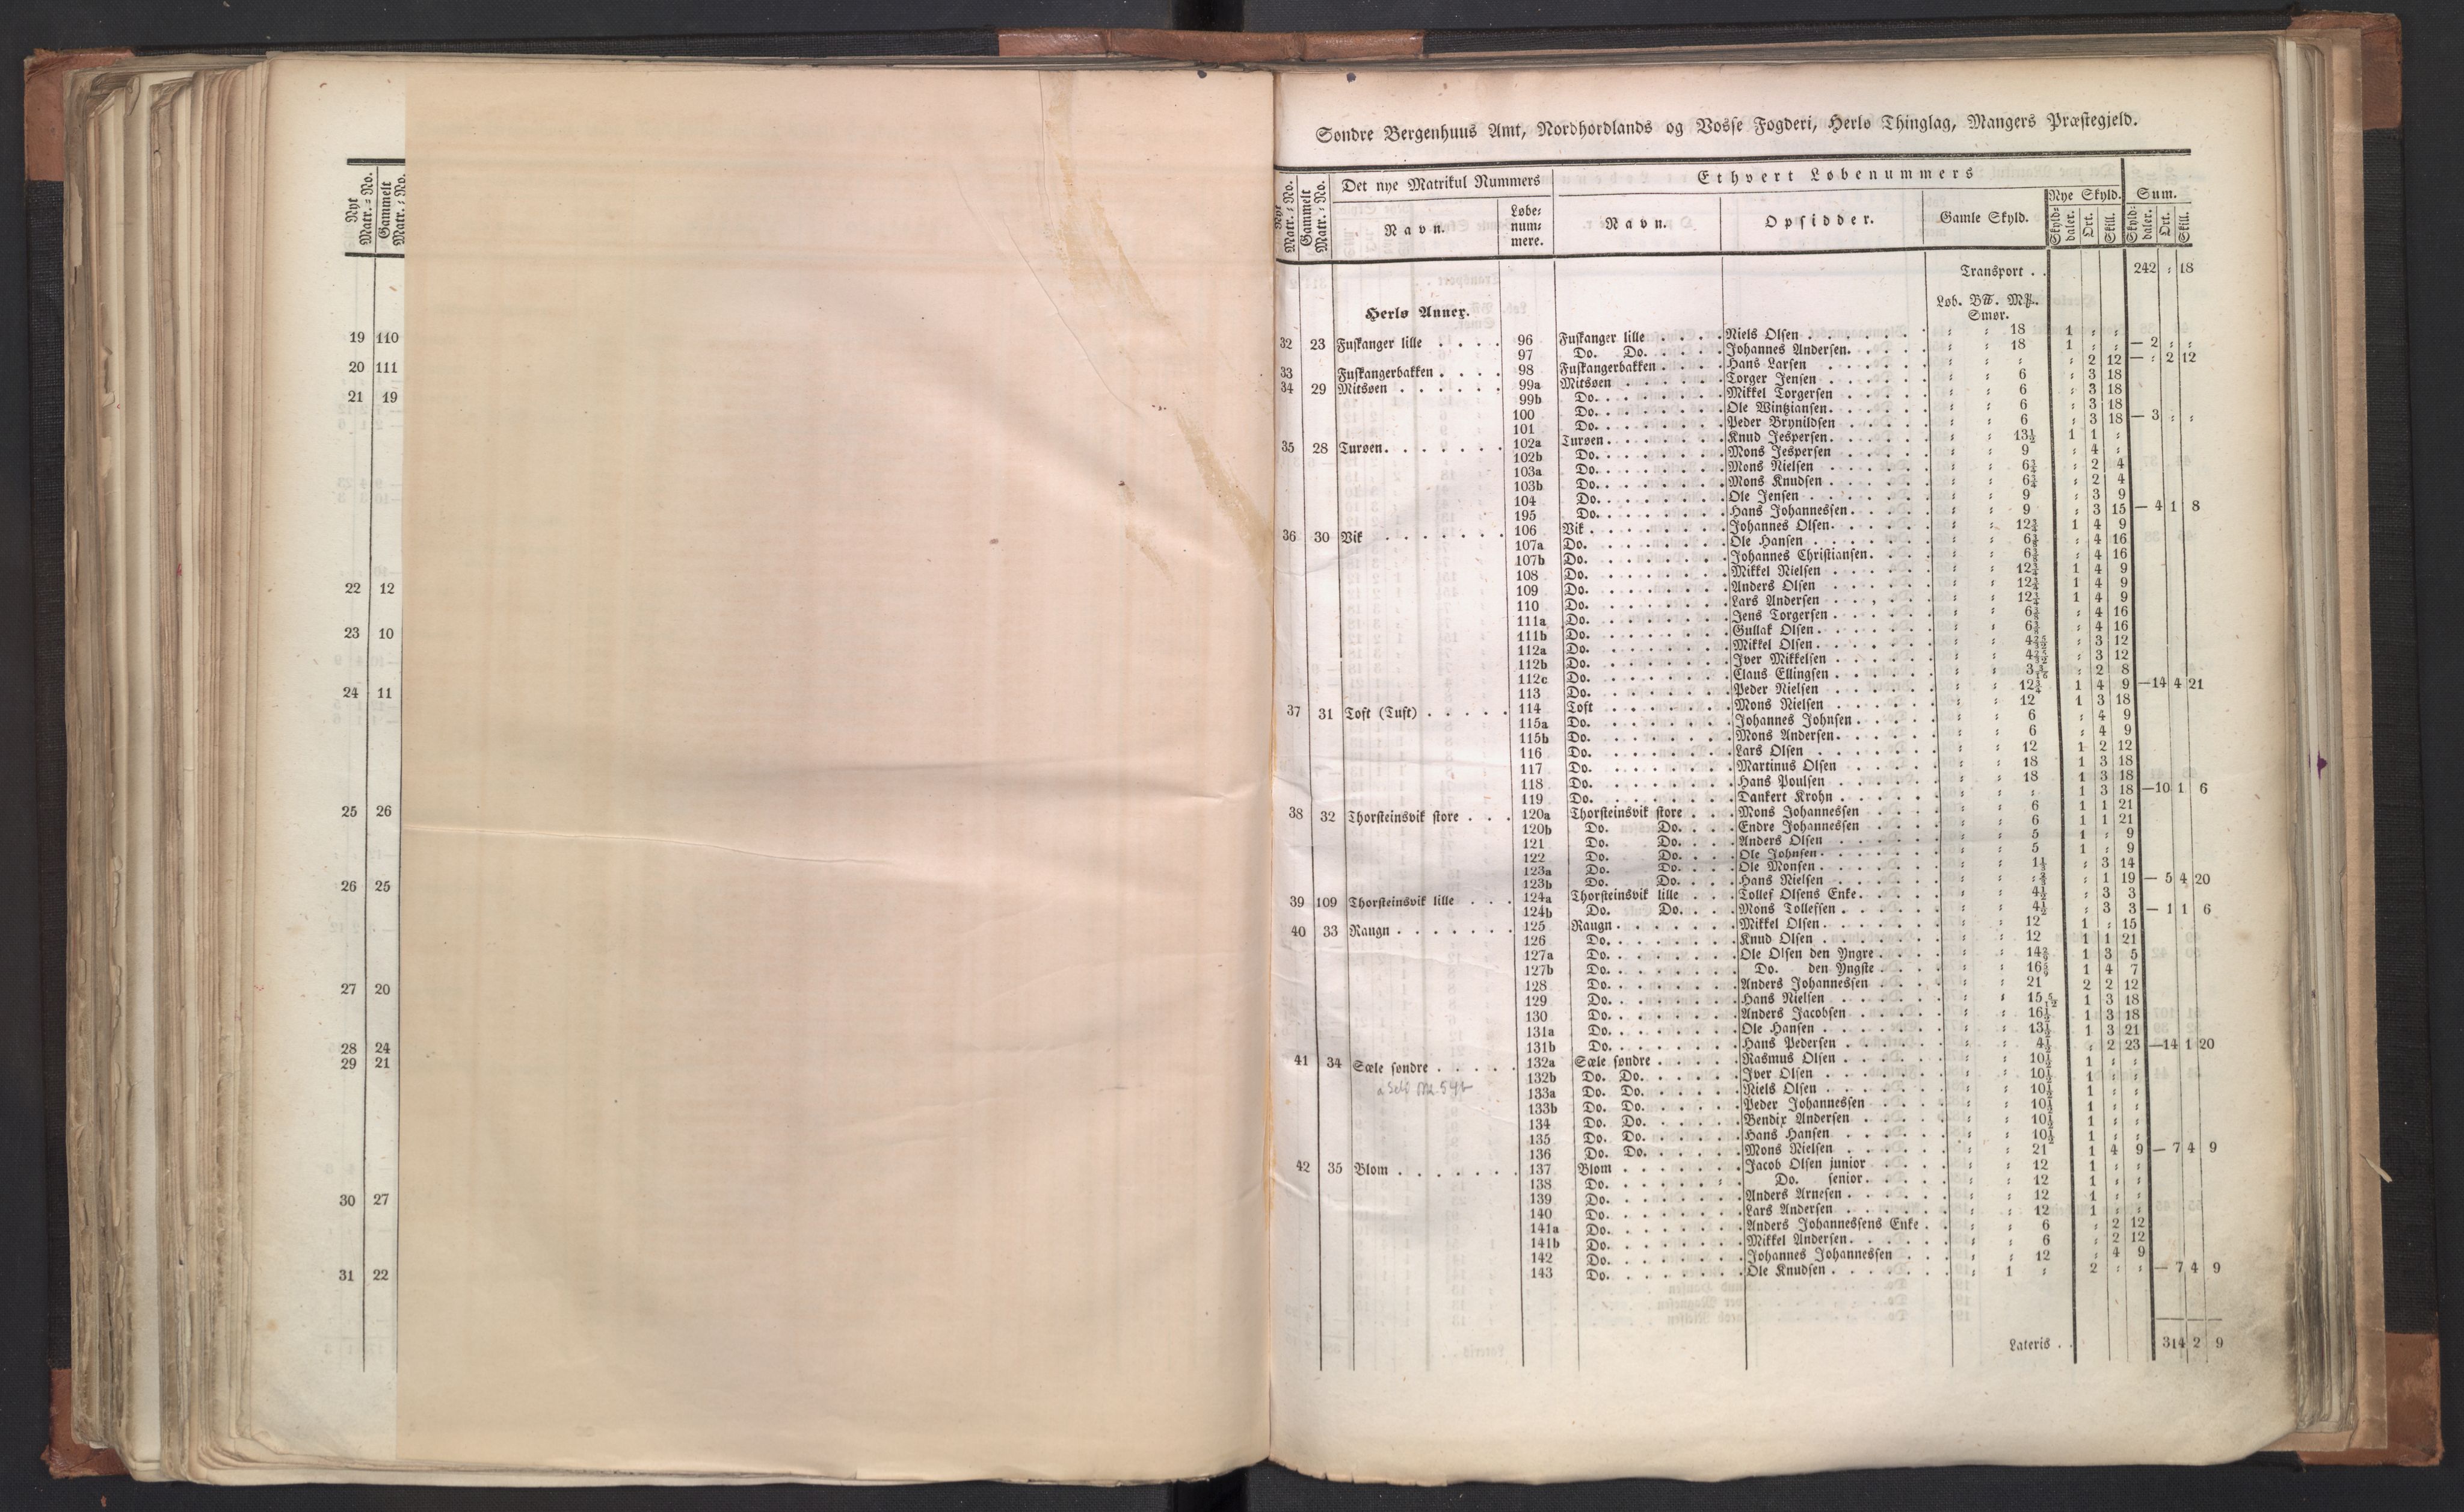 Nyt Matr.-No.
Gammelt Matr.-No.
19 110
20 111
21 19
22 12
23 10
24 11
25 26
26 25
27 20
28 24
29 21
30 27
31 22
Søndre Bergenhuus Amt, Nordhordlands og Vosse Fogderi, Herlø Thinglag, Mangers Præstegjeld.
Nyt Matr.-No.
Gammelt Matr.-No.
Det nye Matrikul Nummers
Ethvert Løbenummers
Navn. Løbenummere. Navn. Opsidder. Gamle Skyld. Nye Skyld. Sum.
Skylddaler. Ort. Skill. Skylddaler. Ort. Skill.
Transport . . 242 : 18
Løb. B℔. M℔.
Herlø Annex. Smør.
32 23 Fuskanger lille . . . . 96 Fuskanger lille . . . . Niels Olsen . . . . : : 18 1 : :
97 Do. Do. . . . . Johannes Andersen. . . . : : 18 1 : : — 2 : :
33 Fuskangerbakken . . . . 98 Fuskangerbakken . . . . Hans Larsen . . . . : : : : 2 12 — : 2 12
34 29 Mitsøen . . . . 99a Mitsøen . . . . Torger Jensen . . . . : : 6 : 3 18
99b Do. . . . . Mikkel Torgersen . . . . : : 6 : 3 18
100 Do. . . . . Ole Wintziansen. . . . : : 6 : 3 18
101 Do. . . . . Peder Brynildsen . . . . : : 6 : 3 18 — 3 : :
35 28 Turøen. . . . 102a Turøen. . . . Knud Jespersen. . . . : : 13½ 1 1 :
102b Do. . . . . Mons Jespersen . . . . : : 9 : 4 :
103a Do. . . . . Mons Nielsen . . . . : : 6¾ : 2 4
103b Do. . . . . Mons Knudsen . . . . : : 6¾ : 2 4
104 Do. . . . . Ole Jensen . . . . : : 9 : 3 9
195 Do. . . . . Hans Johannessen. . . . : : 9 : 3 15 — 4 1 8
36 30 Vik . . . . 106 Vik . . . . Johannes Olsen. . . . : : 12¾ 1 4 9
107a Do. . . . . Ole Hansen . . . . : : 6⅜ : 4 16
107b Do. . . . . Johannes Christiansen. . . . : : 6⅜ : 4 16
108 Do. . . . . Mikkel Nielsen . . . . : : 12¾ 1 4 9
109 Do. . . . . Anders Olsen . . . . : : 12¾ 1 4 9
110 Do. . . . . Lars Andersen . . . . : : 12¾ 1 4 9
111a Do. . . . . Jens Torgersen . . . . : : 6⅜ : 4 16
111b Do. . . . . Gullak Olsen. . . . : : 6⅜ : 4 16
112a Do. . . . . Mikkel Olsen. . . . : : 4 25/32 : 3 12
112b Do. . . . . Iver Mikkelsen . . . . : : 4 25/32 : 3 12
112c Do. . . . . Claus Ellingsen . . . . : : 3 3/16 : 2 8
113 Do. . . . . Peder Nielsen . . . . : : 12¾ 1 4 9 —14 4 21
37 31 Toft (Tuft) . . . . 114 Toft . . . . Mons Nielsen . . . . : : 12 1 3 18
115a Do. . . . . Johannes Johnsen. . . . : : 6 : 4 9
115b Do. . . . . Mons Andersen. . . . : : 6 : 4 9
116 Do. . . . . Lars Olsen . . . . : : 12 1 2 12
117 Do. . . . . Martinus Olsen . . . . : : 18 1 3 18
118 Do. . . . . Hans Poulsen . . . . : : 18 1 3 18
119 Do. . . . . Dankert Krohn . . . . : : : 1 3 18 —10 1 6
38 32 Thorsteinsvik store . . . 120a Thorsteinsvik store . . . Mons Johannessen . . . : : 6 1 1 21
120b Do. Do. . . . Endre Johannessen . . . : : 6 1 1 21
121 Do. Do. . . . Anders Olsen . . . . : : 5 1 : 9
122 Do. Do. . . . Ole Johnsen. . . . : : 5 1 : 9
123a Do. Do. . . . Ole Monsen. . . . : : 1⅓ : 3 14
123b Do. Do. . . . Hans Nielsen . . . . : : ⅔ : 1 19 — 5 4 20
39 109 Thorsteinsvik lille . . . 124a Thorsteinsvik lille . . . Tollef Olsens Enke. . . . : : 4½ : 3 3
124b Do. Do. . . . Mons Tollefsen . . . . : : 4½ : 3 3 — 1 1 6
40 33 Raugn . . . . 125 Raugn. . . . Mikkel Olsen. . . . : : 12 1 : 15
126 Do. . . . . Knud Olsen . . . . : : 12 1 1 21
127a Do. . . . . Ole Olsen den Yngre . . . . : : 14 1 3 5
127b Do. . . . . Do. den Yngste . . . . : : 16 1 4 7
128 Do. . . . . Anders Johannessen . . . . : : 21 2 2 12
129 Do. . . . . Hans Nielsen . . . . : : 15 5/12 1 3 18
130 Do. . . . . Anders Jacobsen . . . . : : 16½ 1 3 18
131a Do. . . . . Ole Hansen . . . . : : 13½ 1 3 21
131b Do. . . . . Hans Pedersen . . . . : : 4½ : 2 23 —14 1 20
41 34 Sæle søndre . . . . 132a Sæle søndre . . . . Rasmus Olsen . . . . : : 10½ 1 : :
132b Do. Do. . . . . Iver Olsen . . . . : : 10½ 1 : :
133a Do. Do. . . . . Niels Olsen . . . . : : 10½ 1 : :
133b Do. Do. . . . . Peder Johannessen . . . . : : 10½ 1 : :
134 Do. Do. . . . . Bendix Andersen . . . . : : 10½ 1 : :
135 Do. Do. . . . . Hans Hansen . . . . : : 10½ 1 : :
136 Do. Do. . . . . Mons Nielsen . . . . : : 21 1 4 9 — 7 4 9
42 35 Blom . . . . 137 Blom . . . . Jacob Olsen junior . . . . : : 12 1 : :
138 Do. . . . . Do. senior. . . . : : 12 1 : :
139 Do. . . . . Anders Arnesen . . . . : : 12 1 : :
140 Do. . . . . Lars Andersen . . . . : : 12 1 : :
141a Do. . . . . Anders Johannessens Enke . . : : 6 : 2 12
141b Do. . . . . Mikkel Andersen. . . . : : 6 : 2 12
142 Do. . . . . Johannes Johannessen . . . : : 12 : 4 9
143 Do. . . . . Ole Knudsen . . . . : 1 : 2 : : — 7 4 9
Lateris . . 314 2 9